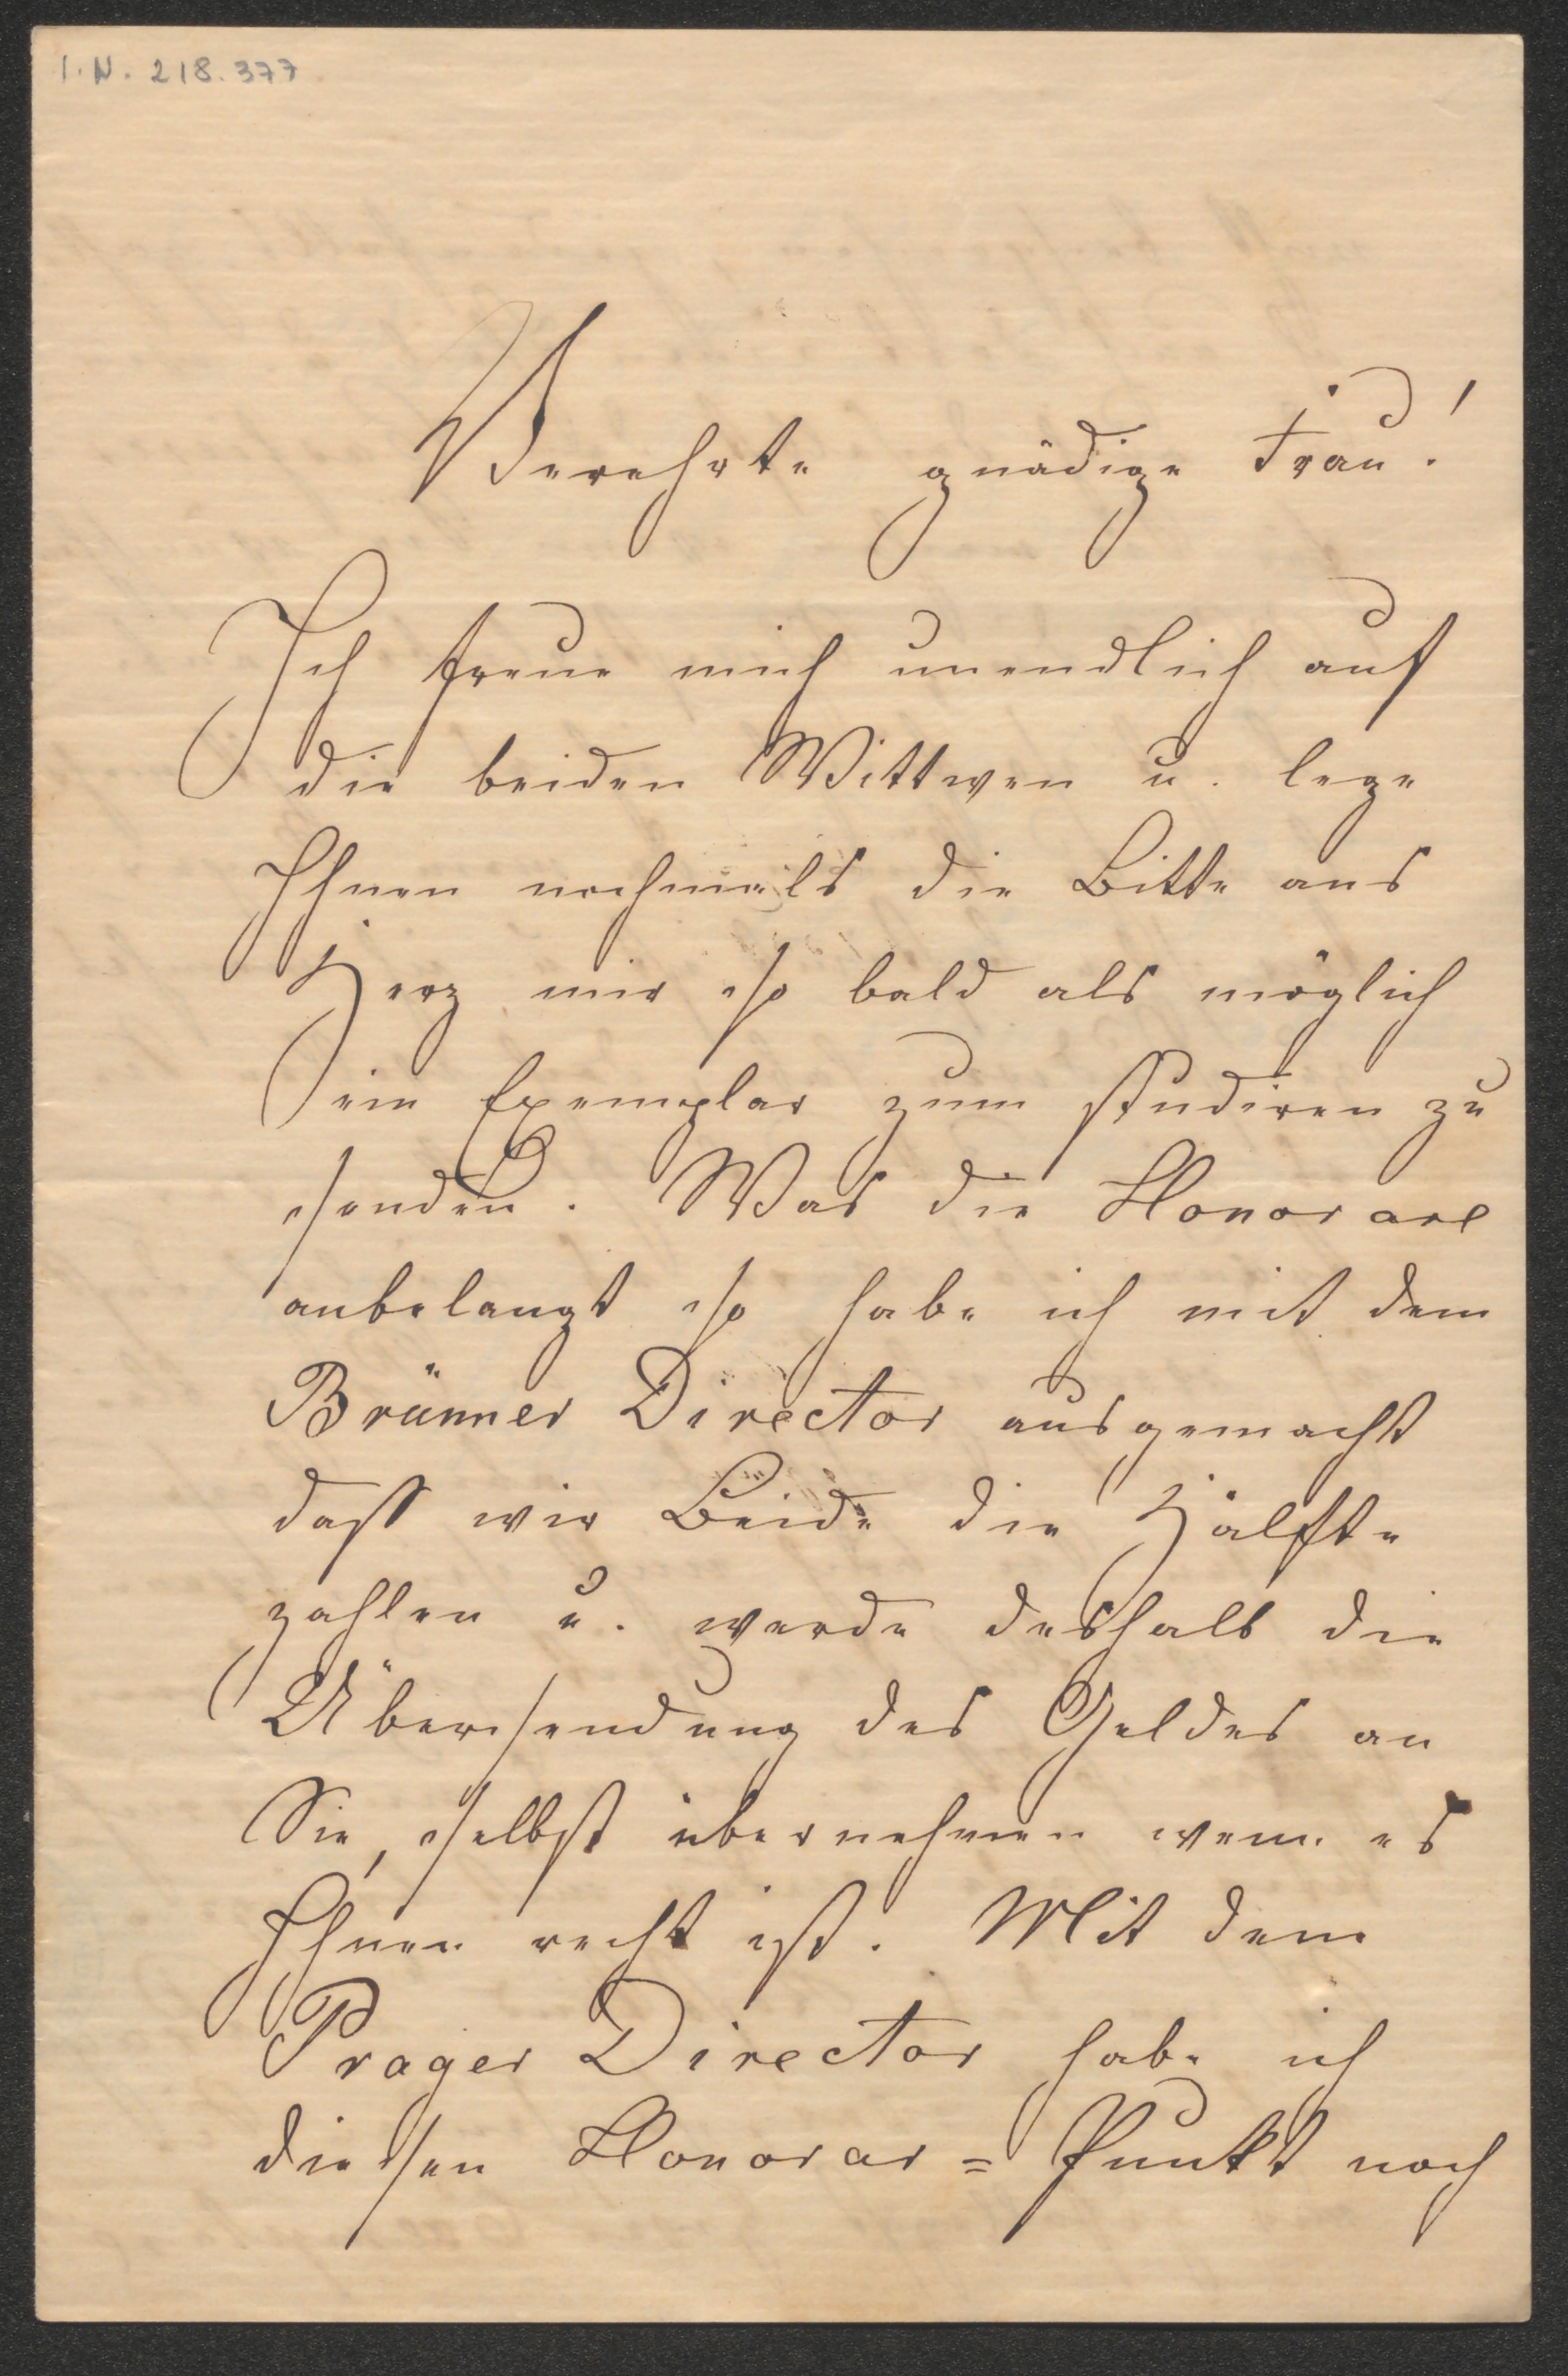 I.N. 218.377
Verehrte gnädige Frau!
Ich freue mich unendlich auf
die beiden Wittwen u. lege
Ihnen nochmals die Bitte ans
Herz mir so bald als möglich
ein Exemplar zum studiren zu
senden. Was die Honorare
anbelangt so habe ich mit dem
Brünner Director ausgemacht
dass wir Beide die Hälfte
zahlen u. werde deshalb die
Übersendung des Geldes an
Sie, selbst übernehmen wenn es
Ihnen recht ist. Mit dem
Prager Director habe ich
diesen Honorar=Punkt noch